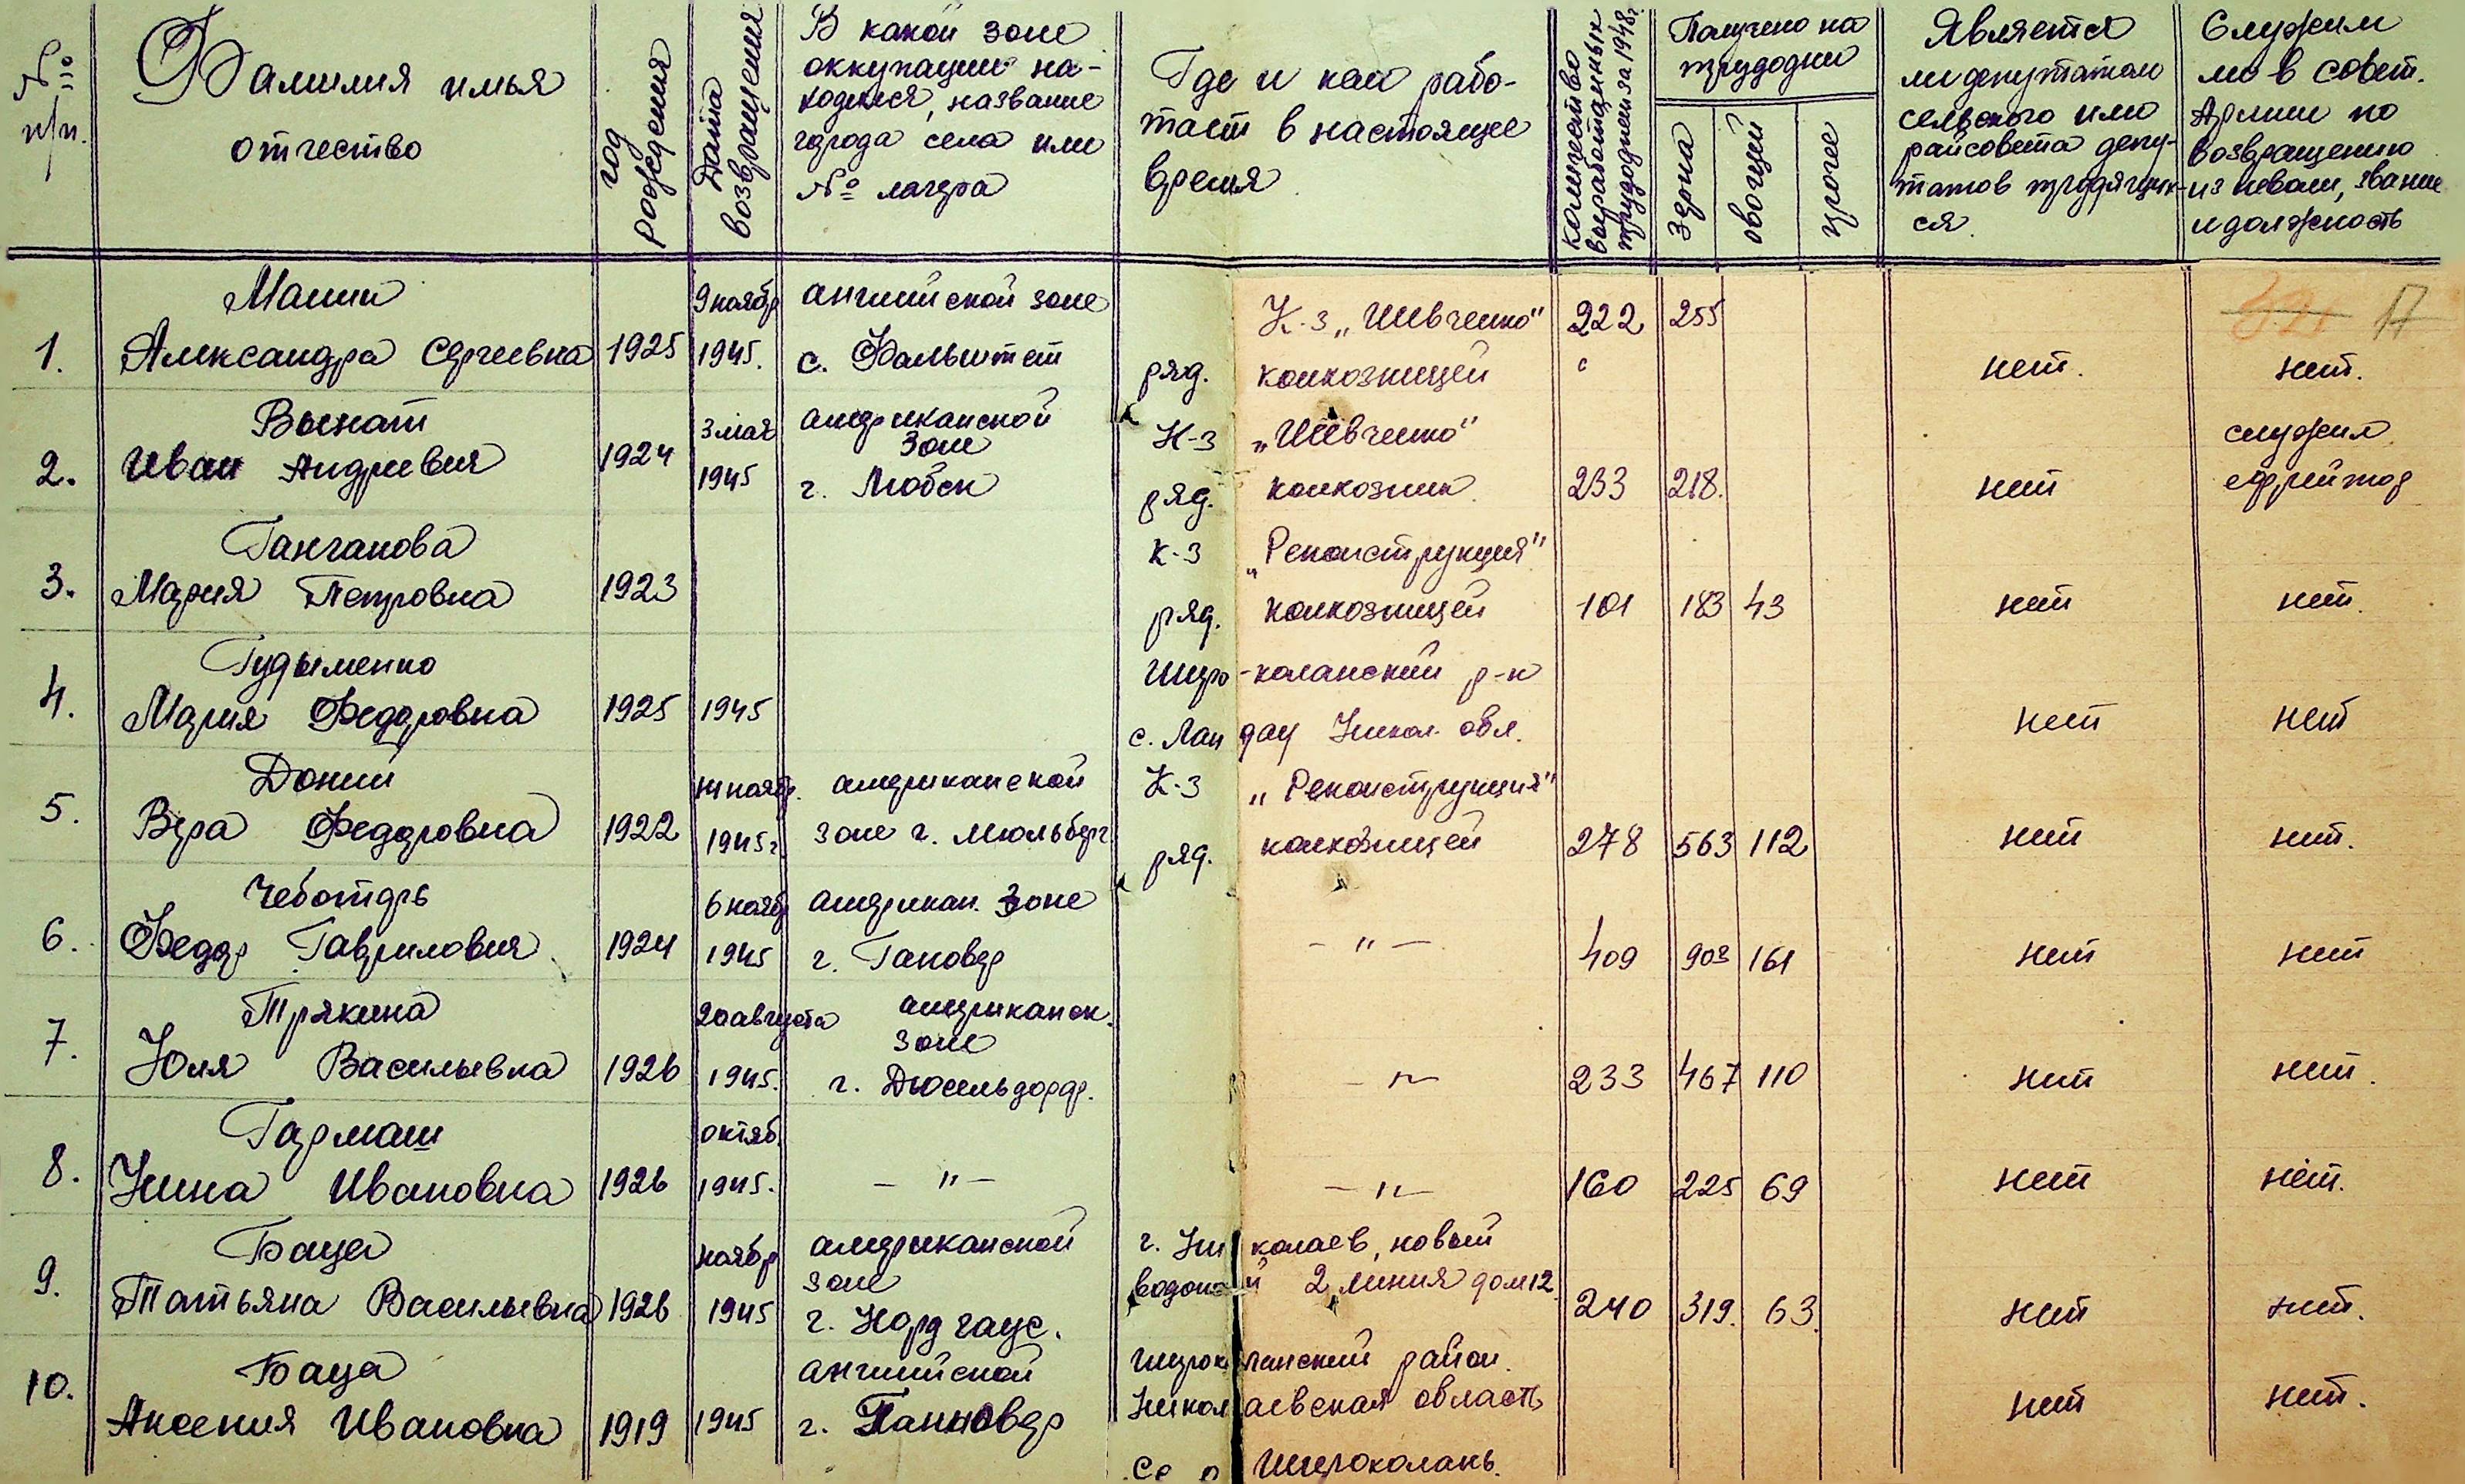 № п/п.
Фамилия имья
отчество
год рождения
Дата возвращения
В какой зоне
оккупации на-
ходился, название
города села или
№ лагеря
Где и кем рабо-
тает в настоящее
время
количество
выработанных
трудодней за 1948г.
Получено на
трудодни
зерна
овощей
прочее
Является
ли депутатом
сельского или
райсовета депу-
татов трудящих-
ся.
Служил
ли в совет.
Армии по
возвращению
из неволи, звание
и должность
Маший
1. Александра Сергеевна 1925 9 ноябр 1945.
английской зоне
с. Фальштет
К-з „Шевченко" 222 255
ряд. колхозницей
нет. нет.
17
Вынат
2. Иван Андреевич 1924 3 мая 1945
американской
зоне
г. Любек
К-з „Шевченко"
ряд. колхозник 233 218. нет
служил
ефрейтор
Ганганова
3. Мария Петровна 1923
к-з „Реконструкция"
ряд. колхозницей 101 183 43 нет нет.
Гудыменко
4. Мария Федоровна 1925 1945
Широ-коланский р-н
с. Ландау Никол. обл.
нет нет
Доний
5. Вера Федоровна 1922 14 ноябр. 1945г.
американской
зоне г. Мюльберг
К-з „Реконструкция"
ряд. колхозницей 278 563 112 нет нет.
Чеботарь
6. Федор Гаврилович 1924 6 ноябр 1945
американ. зоне
г. Гановер
— " — 409 903 161 нет нет
Трякина
7. Юля Васильевна 1926 20 августа 1945.
американск.
зоне
г. Дюсельдорф.
— " — 233 467 110 нет нет.
Гармаш
8. Нина Ивановна 1926 октяб. 1945.
— " —
— " — 160 225 69 нет нет.
Баца
9. Татьяна Васильевна 1926 ноябр 1945
американской
зоне
г. Нордгаус.
г. Николаев, новый
водопой 2 линия дом 12
240 319. 63. нет нет.
Баца
10. Аксения Ивановна 1919 1945
английской
г. Ганновер
Широколанский район.
Николаевская область
Село Широколань.
нет нет.